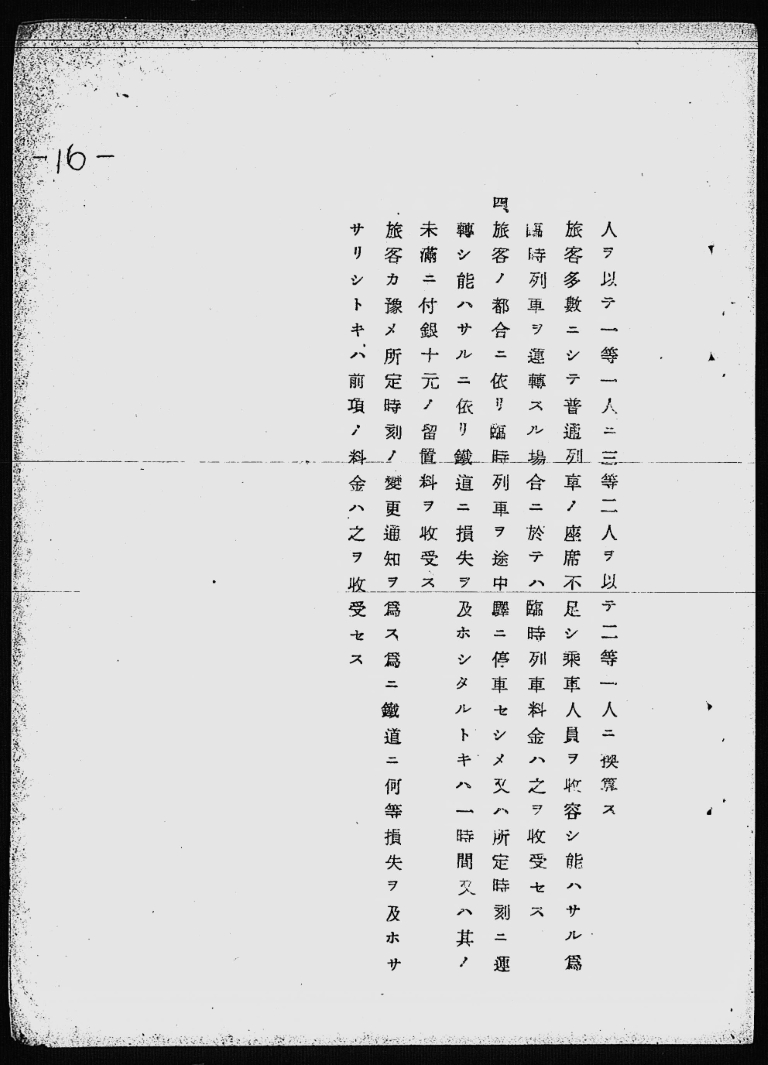 -16-
人ヲ以テ一等一人ニ三等二人ヲ以テ二等一人ニ換算ス
旅客多數ニシテ普通列車ノ座席不足シ乘車人員ヲ收容シ能ハサル爲
臨時列車ヲ運轉スル場合ニ於テハ臨時列車料金ハ之ヲ收受セス
四、旅客ノ都合ニ依リ臨時列車ヲ途中驛ニ停車セシメ又ハ所定時刻ニ運
轉シ能ハサルニ依リ鐵道ニ損失ヲ及ホシタルトキハ一時間又ハ其ノ
未滿ニ付銀十元ノ留置料ヲ收受ス
旅客カ豫メ所定時刻ノ變更通知ヲ爲ス爲ニ鐵道ニ何等損失ヲ及ホサ
サリシトキハ前項ノ料金ハ之ヲ收受セス